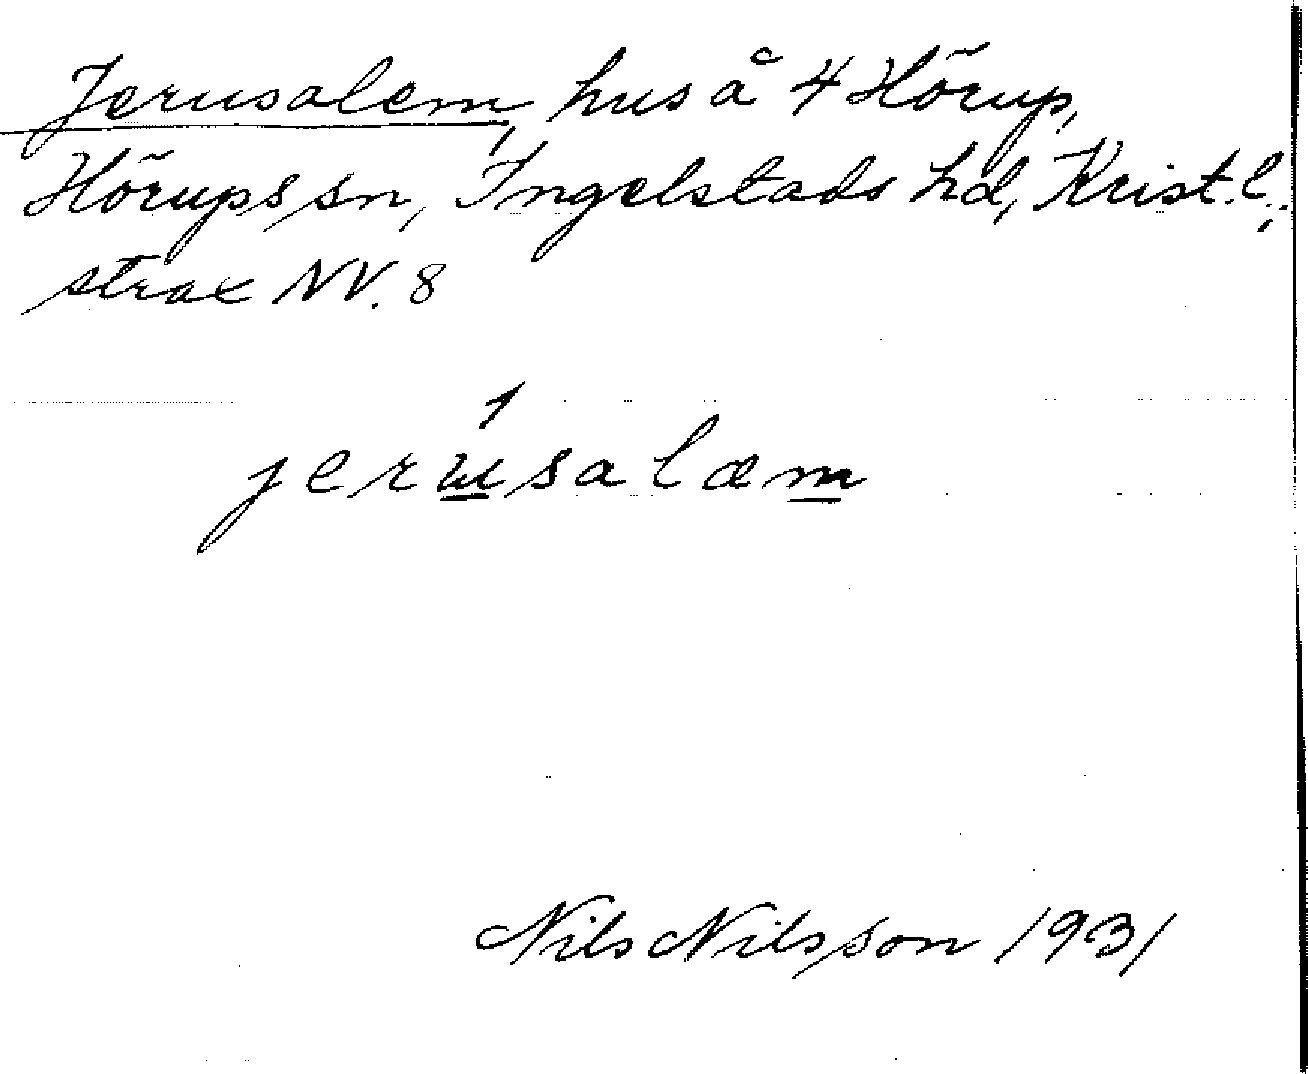 Jerusalem, hus å 4 Hörup,
Hörups sn, Ingelstads hd, Krist. l.,
strax NV. 8
jerúsalæm
Nils Nilsson 1931